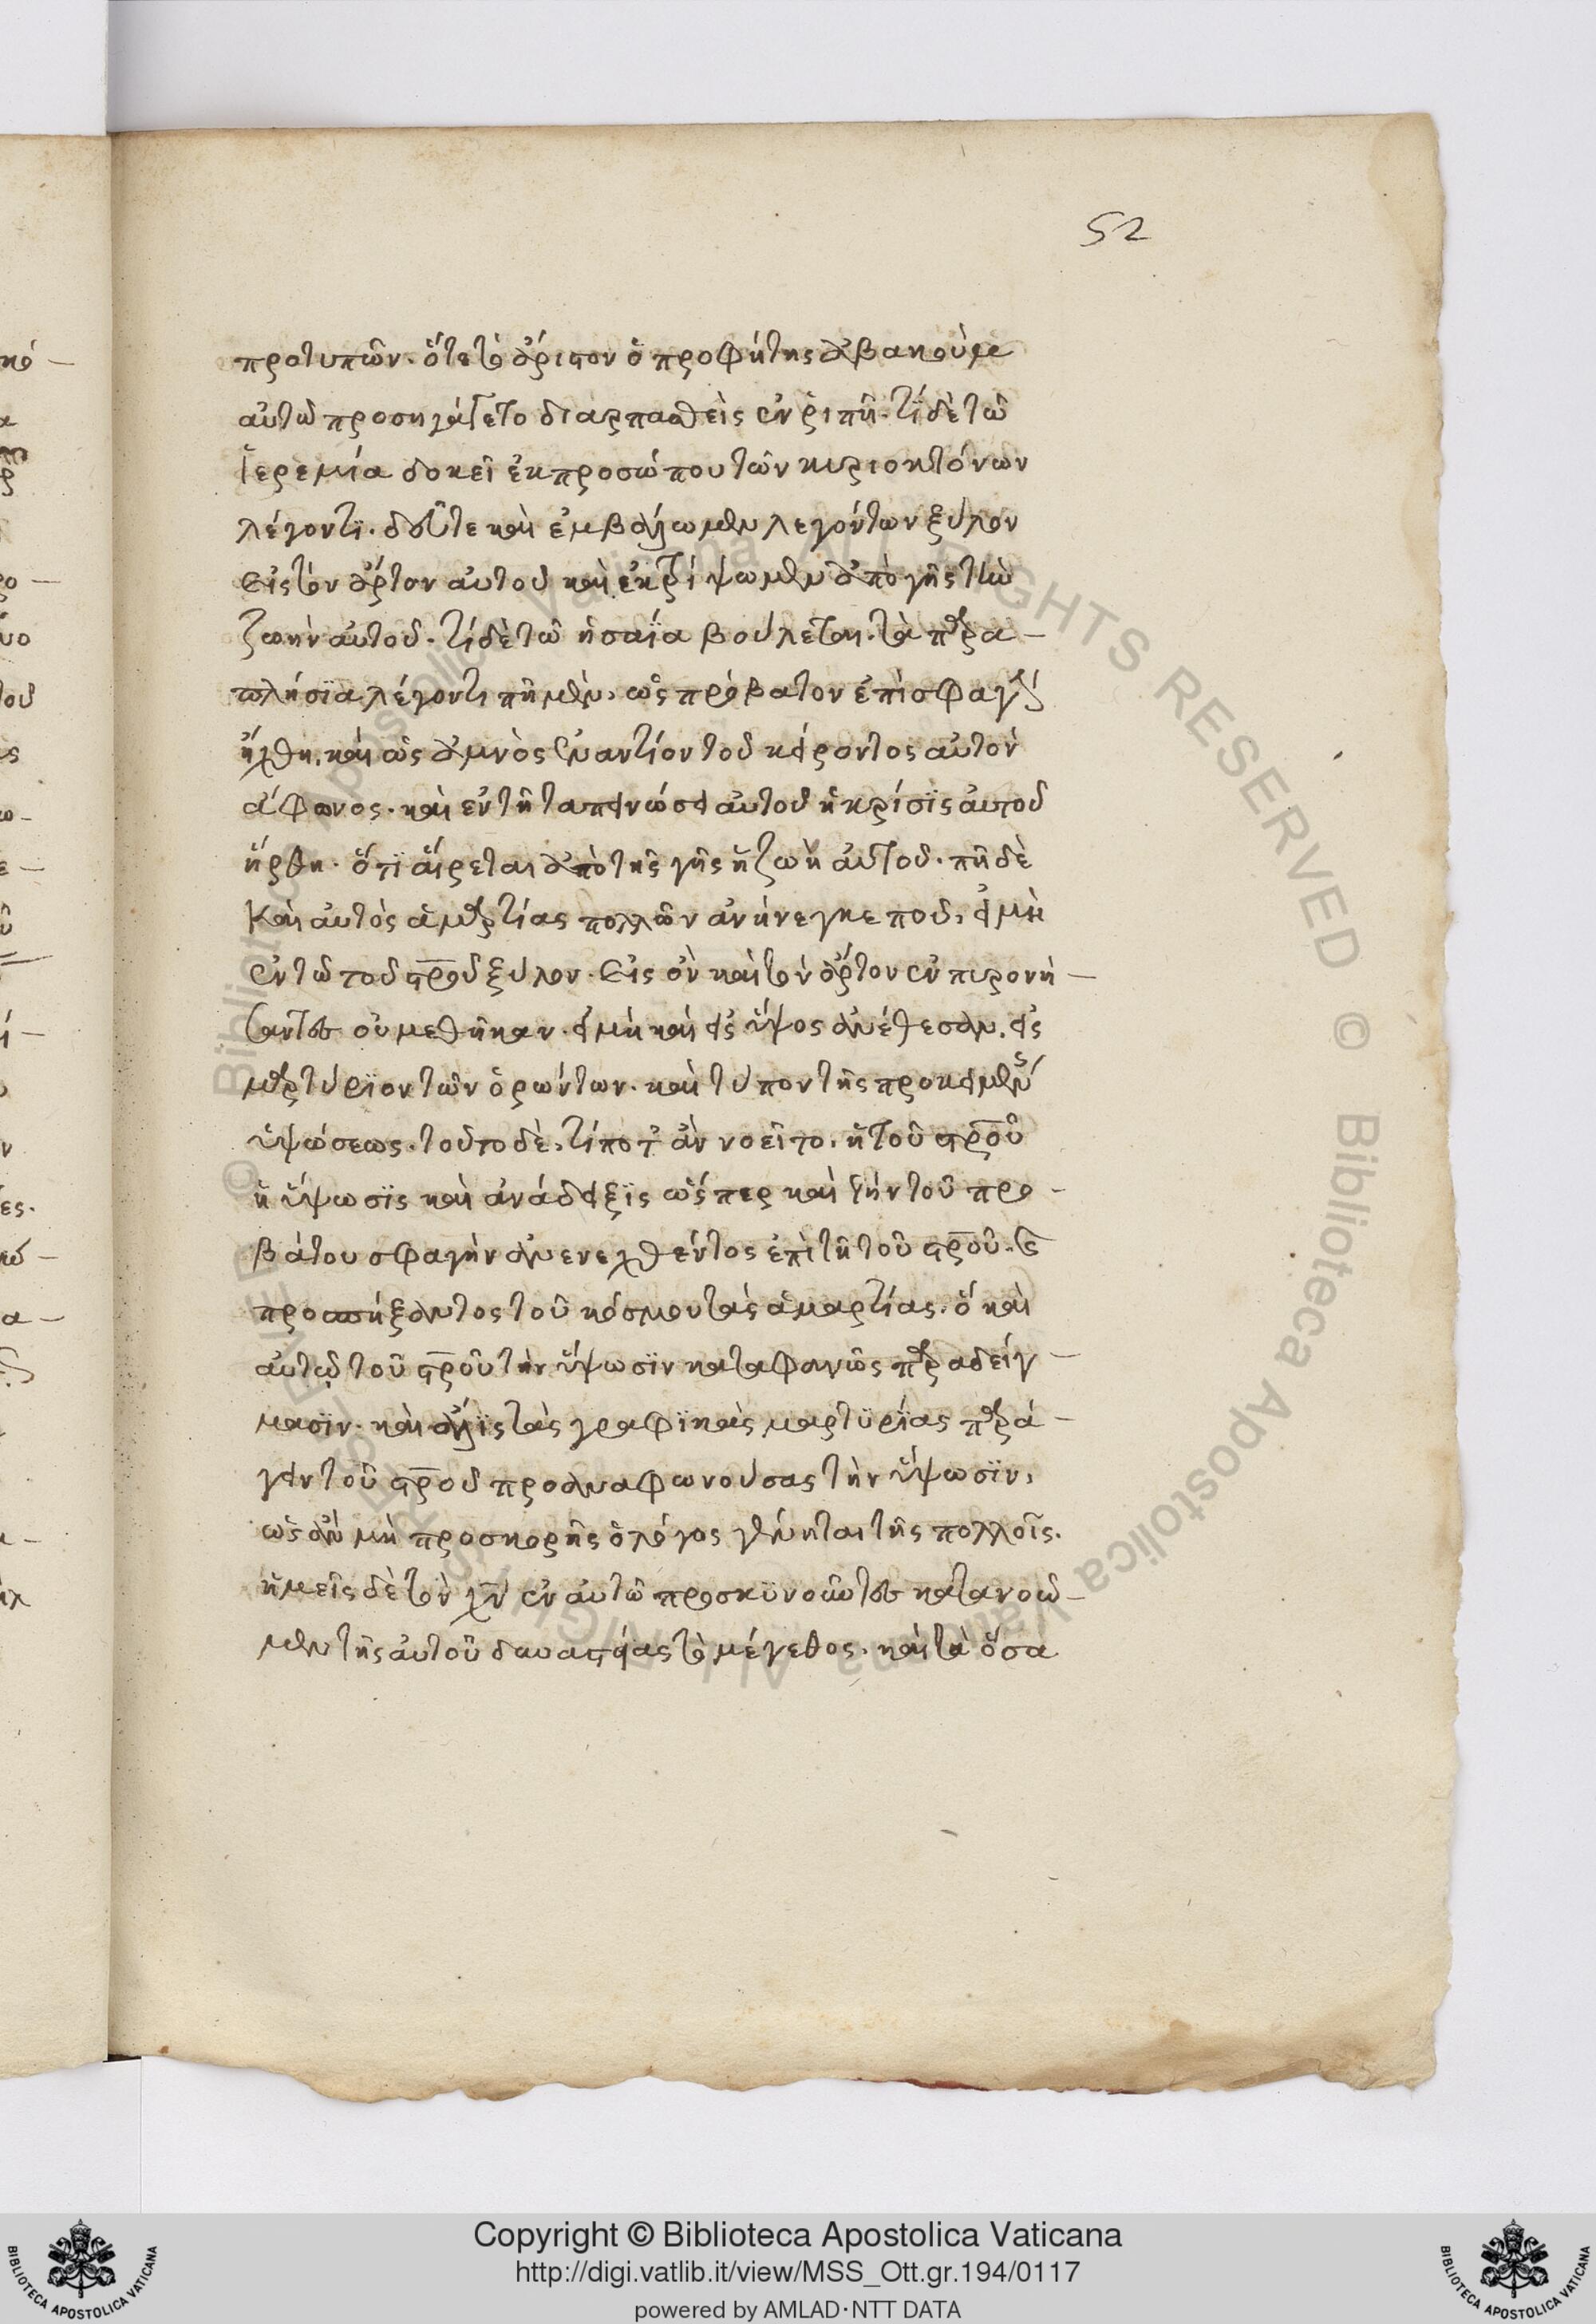 52
προτυπῶν. ὅτε τὸ ἄριστον ὁ προφήτης ἀβακοὺμ
αὐτῶ προσηγάγετο διαρπασθεὶς ἐν ῥιπῆ. τί δὲ τῶ
ἱερεμία δοκεῖ ἐκ προσώπου τῶν κυριοκτόνων
λέγοντϊ. δεῦτε καὶ ἐμβάλωμεν λεγόντων ξύλον
εἰς τὸν ἄρτον αὐτοῦ καὶ ἐκτρίψωμεν ἀπὸ γῆς τὴν
ζωὴν αὐτοῦ. τί δὲ τῶ ἡσαΐα βούλεται. τὰ παρα-
πλήσϊα λέγοντι πῆ μὲν, ὡς πρόβατον ἐπὶ σφαγὴν
ἤχθη, καὶ ὡς ἀμνὸς ἐναντίον τοῦ κείροντος αὐτὸν
ἄφωνος. καὶ ἐν τῆ ταπεινώσει αὐτοῦ ἡ κρίσϊς αὐτοῦ
ἤρθη. ὅτϊ αἴρεται ἀπὸ τῆς γῆς ἡ ζωὴ αὐτοῦ. πῆ δὲ
καὶ αὐτὸς ἁμαρτίας πολλῶν ἀνήνεγκε ποῦ, εἰ μὴ
ἐν τῶ τοῦ σρ̅οῦ ξύλον. εἰς ὃν καὶ τὸν ἄρτον ἐν πυρονή-
σαντες οὐ μεθῆκαν. εἰ μὴ καὶ εἰς ὕψος ἀνέθεσαν. εἰς
μαρτύρϊον τῶν ὁρώντων. καὶ τύπον τῆς προκειμένης
ὑψώσεως. τοῦτο δὲ, τί ποτ' ἂν νοεῖτο, ἢ τοῦ σρ̅οῦ
ἡ ὕψωσϊς καὶ ἀνάδειξϊς ὥσπερ καὶ τὴν τοῦ προ-
βάτου σφαγὴν ἀνενεχθέντος ἐπὶ τῆ τοῦ σρ̅οῦ. καὶ
προσπήξαντος τοῦ κόσμου τὰς ἁμαρτίας. ὃ καὶ
αὐτῶ τοῦ σρ̅οῦ τὴν ὕψωσϊν καταφανῶς παραδείγ-
μασϊν. καὶ ἅλϊς τὰς γραφϊκὰς μαρτϋρΐας παρά-
γειν τοῦ σρ̅οῦ προαναφωνούσας τὴν ὕψωσϊν,
ὡς ἂν μὴ προσκορὴς ὁ λόγος γένηται τῆς πολλοῖς.
ἡμεῖς δὲ τὸν χ̅ν̅ ἐν αὐτῶ προσκϋνοῦντες κατανοῶ-
μεν τῆς αὐτοῦ δυναστείας τὸ μέγεθος. καὶ τὰ ὅσα
© Biblioteca Apostolica Vaticana ALL RIGHTS RESERVED © Biblioteca Apostolica Vaticana ALL RIGHTS RESERVED
Copyright © Biblioteca Apostolica Vaticana
http://digi.vatlib.it/view/MSS_Ott.gr.194/0117
powered by AMLAD·NTT DATA
BIBLIOTECA APOSTOLICA VATICANA
BIBLIOTECA APOSTOLICA VATICANA